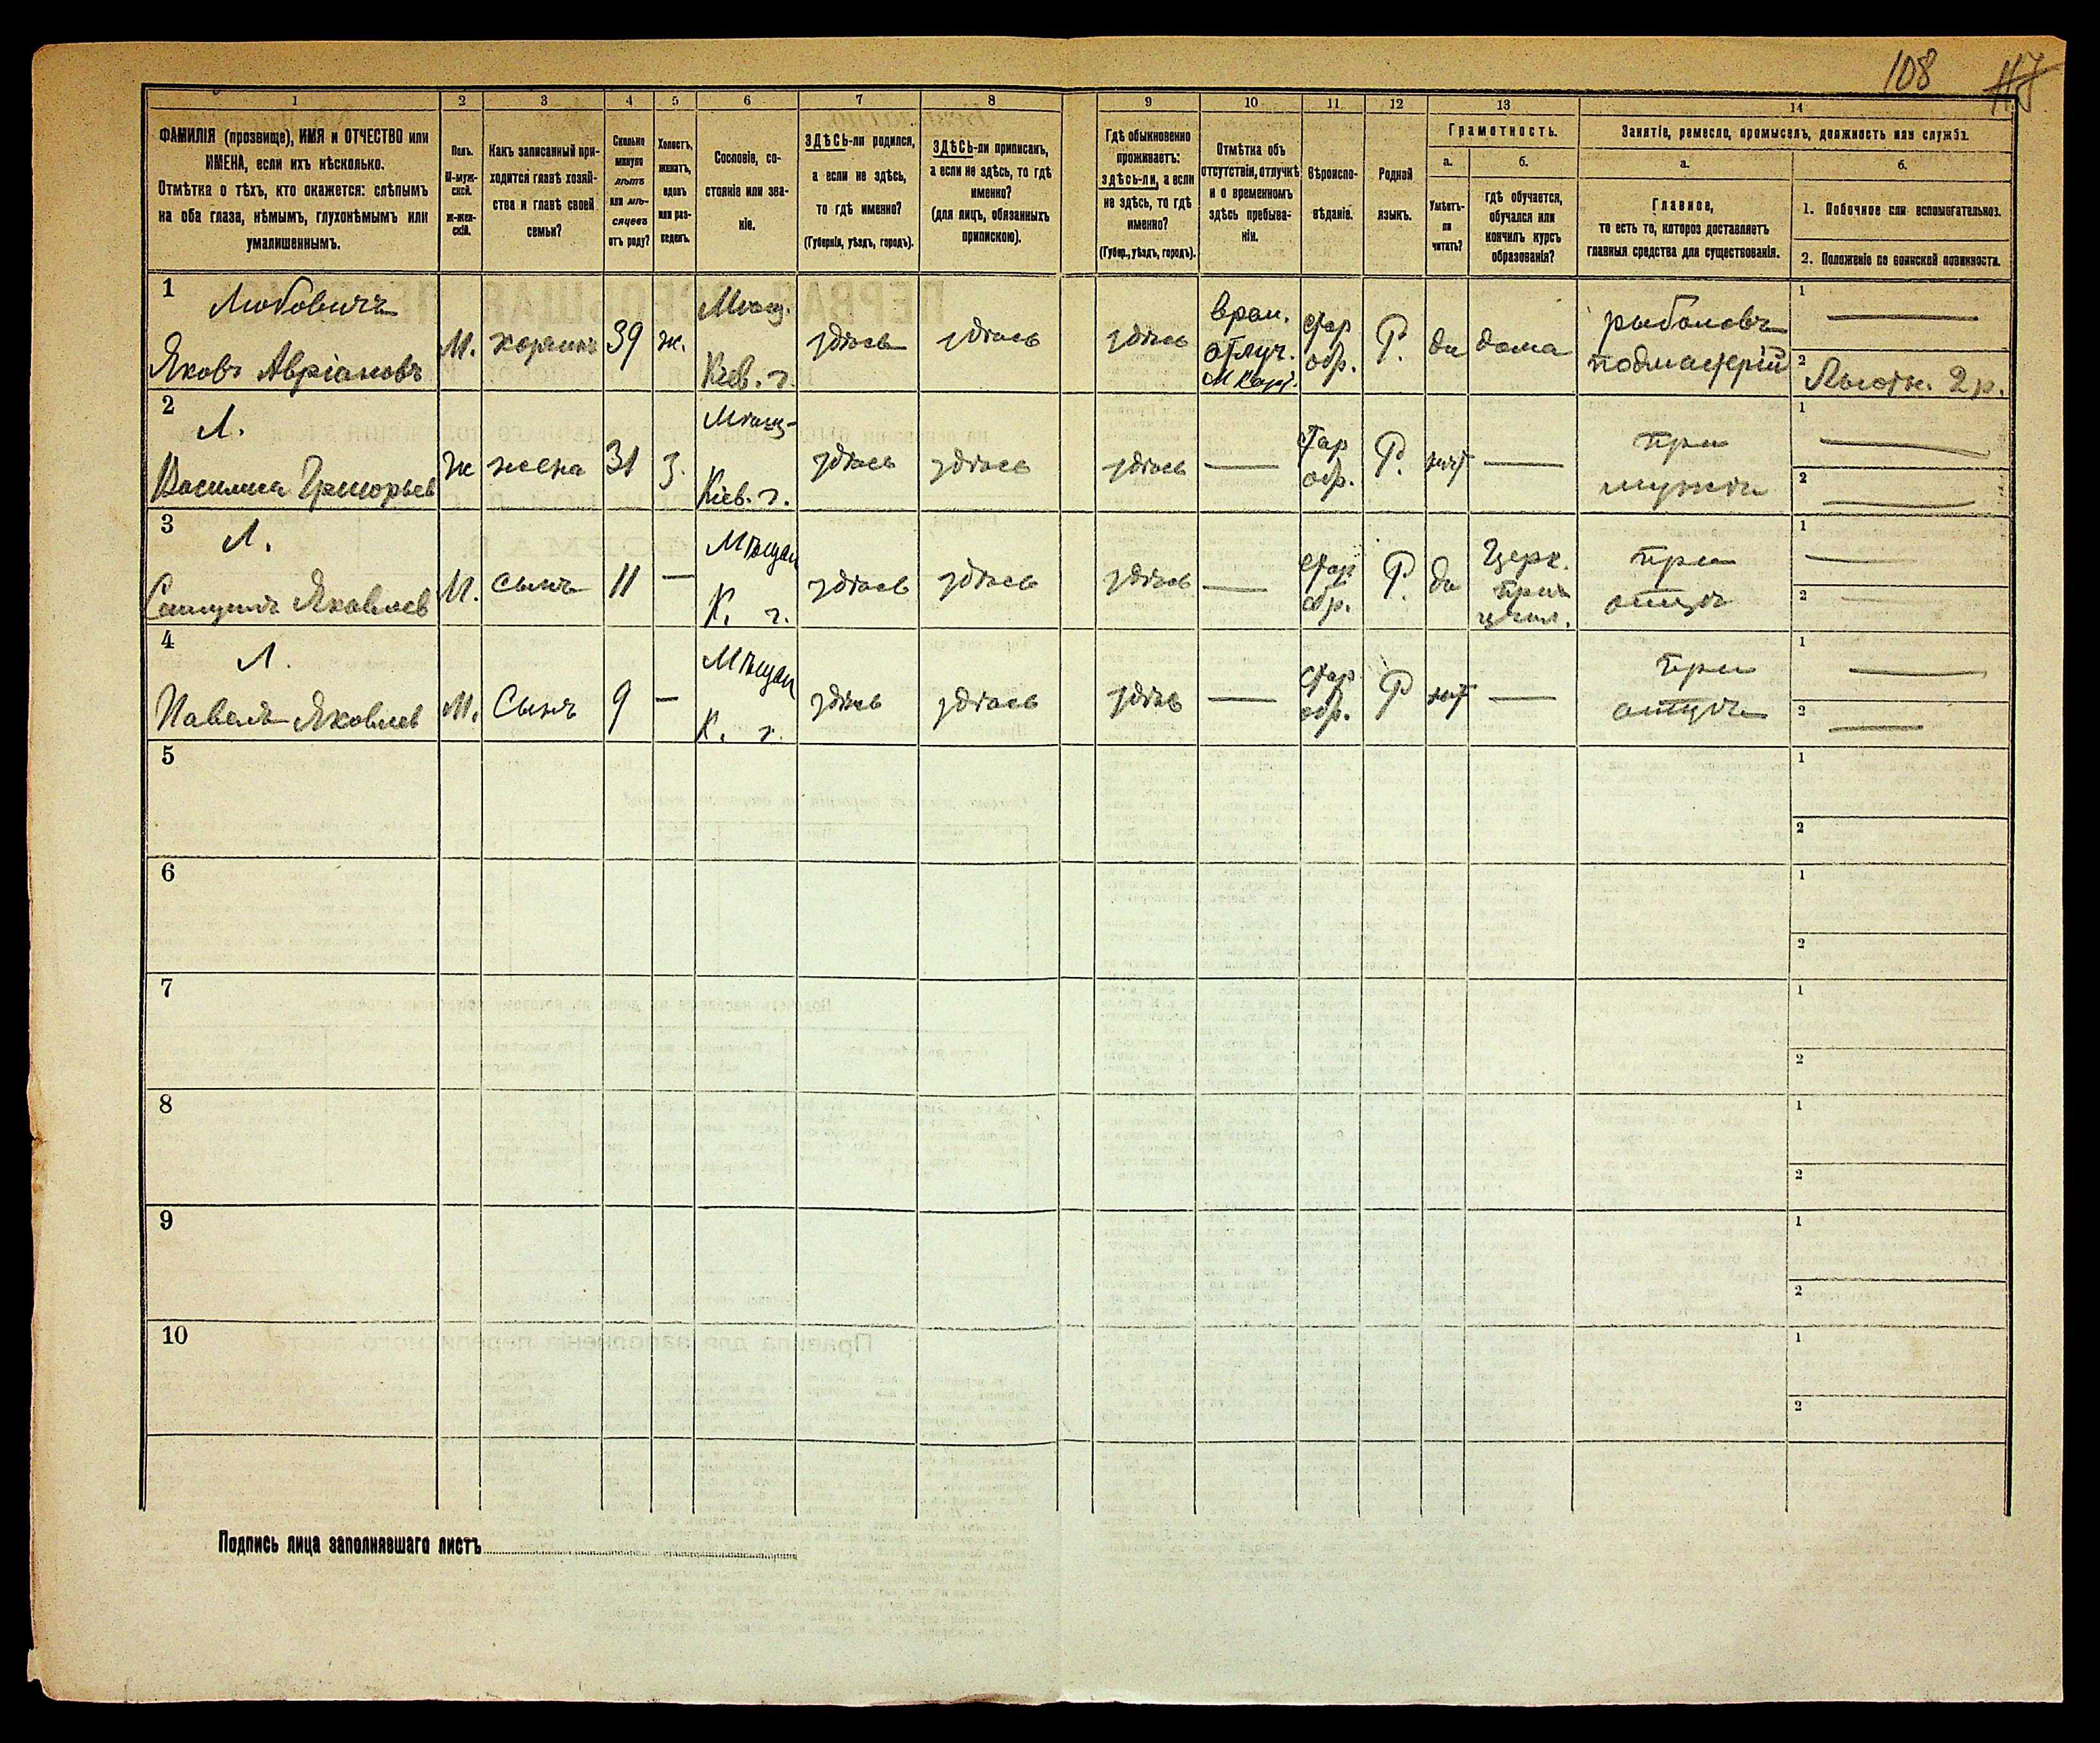 108
1
2
3
4
5
6
7
8
9
10
11
12
13
14
ФАМИЛІЯ (прозвище), ИМЯ и ОТЧЕСТВО или
ИМЕНА, если ихъ нѣсколько.
Отмѣтка о тѣхъ, кто окажется: слѣпымъ
на оба глаза, нѣмымъ, глухонѣмымъ или
умалишеннымъ.
Полъ.
М-муж-
ской.
ж-жен-
скій.
Какъ записанный при-
ходится главѣ хозяй-
ства и главѣ своей
семьи?
Сколько
минуло
лѣтъ
или мѣ-
сяцевъ
отъ роду?
Холостъ,
женатъ,
вдовъ
или раз-
веденъ.
Сословіе, со-
стояніе или зва-
ніе.
ЗДѢСЬ-ли родился,
а если не здѣсь,
то гдѣ именно?
(Губернія, уѣздъ, городъ).
ЗДѢСЬ-ли приписанъ,
а если не здѣсь, то гдѣ
именно?
(для лицъ, обязанныхъ
припискою).
Гдѣ обыкновенно
проживаетъ:
здѣсь-ли, а если
не здѣсь, то гдѣ
именно?
(Губер., уѣздъ, городъ).
Отмѣтка объ
отсутствіи, отлучкѣ
и о временномъ
здѣсь пребыва-
ніи.
Вѣроиспо-
вѣданіе.
Родной
языкъ.
Грамотность.
а.
Умѣетъ-
ли
читать?
б.
гдѣ обучается,
обучался или
кончилъ курсъ
образованія?
Занятіе, ремесло, промыселъ, должность или служба.
а.
Главное,
то есть то, которое доставляетъ
главныя средства для существованія.
б.
1. Побочное или вспомогательное.
2. Положеніе по воинской повинности.
1 Любовичъ
Яковъ Авріановъ М. хозяинъ 39 ж. Мѣщ. Кіев. г. здѣсь здѣсь здѣсь врем. отлуч. стар обр. Р. да дома рыболовъ подмастерій 1
2 Льготн. 2 р.
2 Л.
Василиса Григорьев ж жена 31 з. Мѣщ- Кіев. г. здѣсь здѣсь здѣсь — стар обр. Р. нѣт — при мужѣ 1 —
2 —
3 Л.
Яковлев М. сынъ 11 — Мѣщан К. г. здѣсь здѣсь здѣсь — стар обр. Р да Церк. при при отцѣ 1 —
2 —
4 Л.
Павелъ Яковлев М. Сынъ 9 — Мѣщан К. г. здѣсь здѣсь здѣсь — стар обр. Р нѣт — при отцѣ 1 —
2 —
5
1
2
6
1
2
7
1
2
8
1
2
9
1
2
10
1
2
Подпись лица заполнявшаго листъ